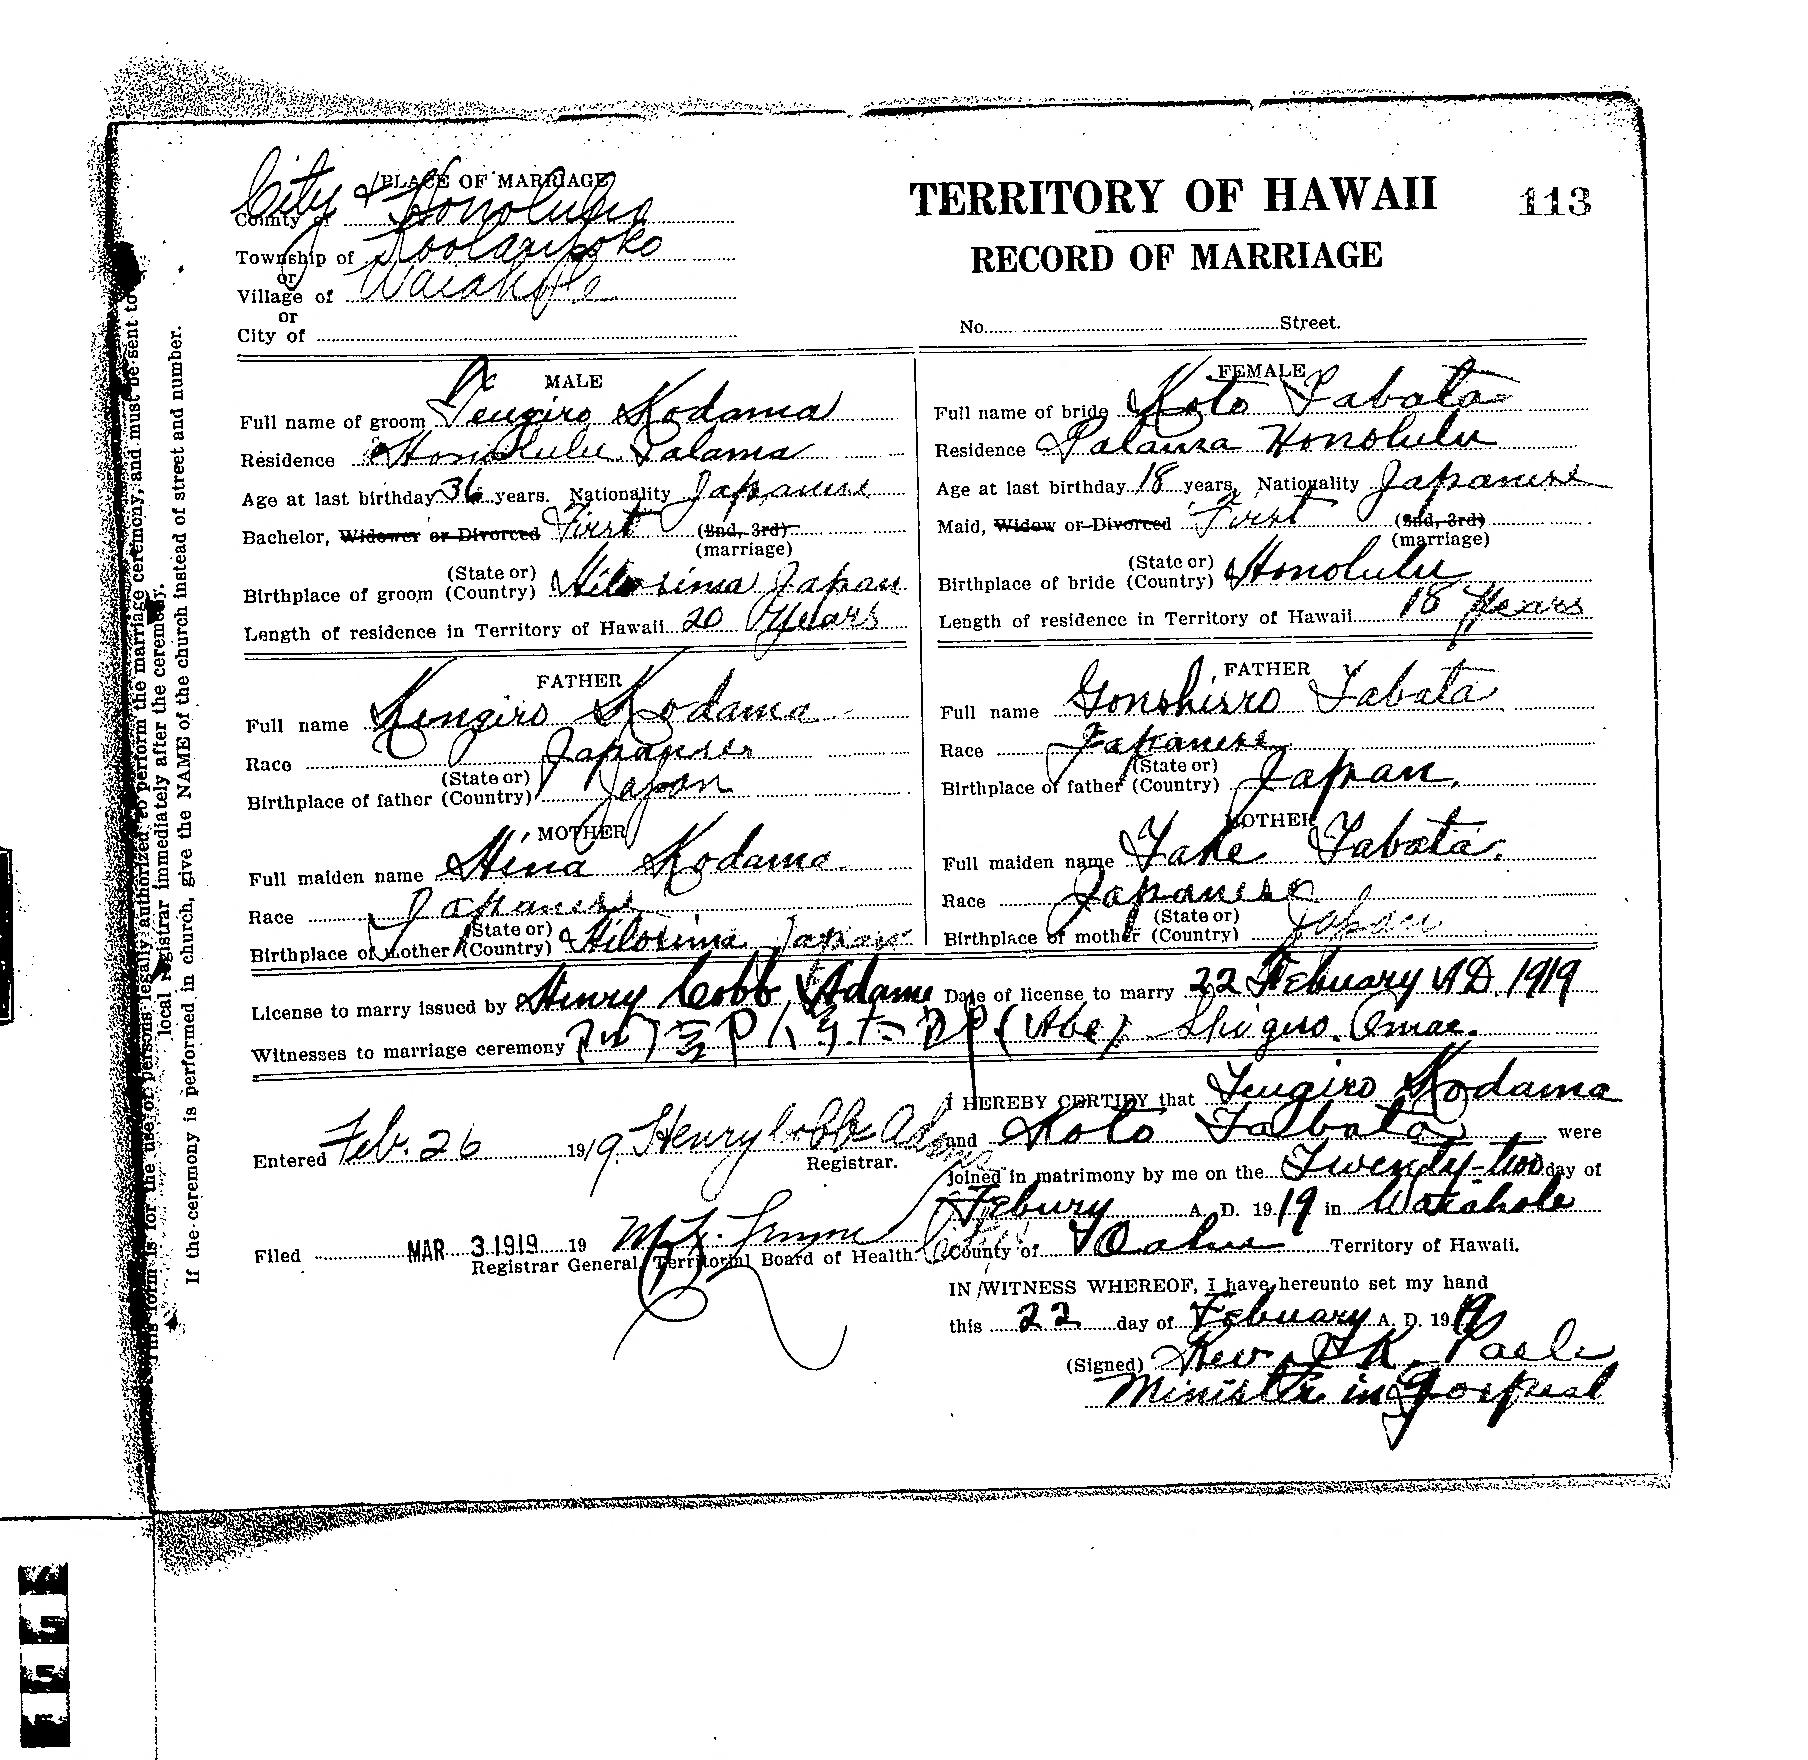 PLACE OF MARRIAGE
City &
County of Honolulu
Township of Koolaupoko
or
Village of Waiahole
or
City of
TERRITORY OF HAWAII
113
RECORD OF MARRIAGE
No. Street.
MALE
Full name of groom Tengiro Kodama
Residence Honolulu Palama
Age at last birthday 36 years. Nationality Japanese
Bachelor, Widower or Divorced First (2nd, 3rd)
(marriage)
Birthplace of groom (State or) (Country) Hilosima Japan
Length of residence in Territory of Hawaii 20 Years
FEMALE
Full name of bride Koto Tabata
Residence Palama Honolulu
Age at last birthday 18 years, Nationality Japanese
Maid, Widow or Divorced First (2nd, 3rd)
(marriage)
Birthplace of bride (State or) (Country) Honolulu
Length of residence in Territory of Hawaii 18 Years
FATHER
Full name Kengiro Kodama
Race Japanese
Birthplace of father (State or) (Country) Japan
MOTHER
Full maiden name Hina Kodama
Race Japanese
Birthplace of mother (State or) (Country) Hilosima Japan
FATHER
Full name Gonshirro Tabata
Race Japanese
Birthplace of father (State or) (Country) Japan.
MOTHER
Full maiden name Take Tabata.
Race Japanese
Birthplace of mother (State or) (Country) Japan
License to marry issued by Henry Cobb Adams Date of license to marry 22 Febuary AD. 1919
Witnesses to marriage ceremony (Abe) Shigiro Omae.
Entered Feb. 26 1919. Henry Cobb Adams
Registrar.
Filed MAR 3 1919 19
Registrar General, Territorial Board of Health.
I HEREBY CERTIFY that Tengiro Kodama
and Koto Tabata were
joined in matrimony by me on the Twenty-two day of
Febury A. D. 1919 in Waiahole
County of Oahu Territory of Hawaii.
IN WITNESS WHEREOF, I have hereunto set my hand
this 22 day of Febuary A. D. 1919
(Signed) Rev. K. Paele
Minister in Gospeal
This form is for the use of persons legally authorized to perform the marriage ceremony, and must be sent to
local registrar immediately after the ceremony.
If the ceremony is performed in church, give the NAME of the church instead of street and number.